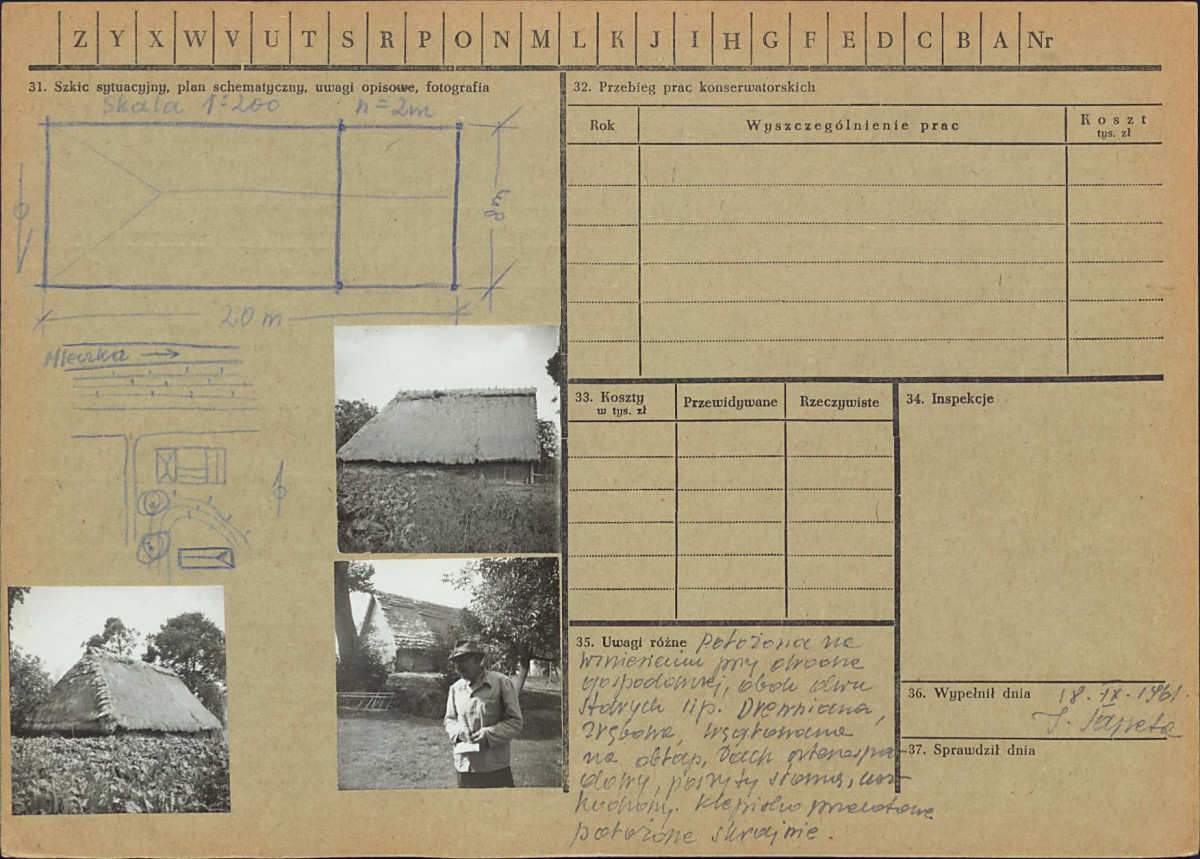 Z Y X W V U T S R P O N M L K J I H G F E D C B A Nr
31. Szkic sytuacyjny, plan schematyczny, uwagi opisowe, fotografia
Skala 1:200 h = 2m
8m
20 m
Mleczka
32. Przebieg prac konserwatorskich
Rok Wyszczególnienie prac Koszt
tys. zł
33. Koszty
w tys. zł
Przewidywane Rzeczywiste
34. Inspekcje
35. Uwagi różne Położona na
wzniesieniu przy drodze
gospodarczej, obok dwu
starych lip. Drewniana,
zrębowa, węgłowana
na obłap, Dach
dowy, poszyty słomą,
Klepisko przelotowe
położone skrajnie.
36. Wypełnił dnia 18.IX.1961.
37. Sprawdził dnia